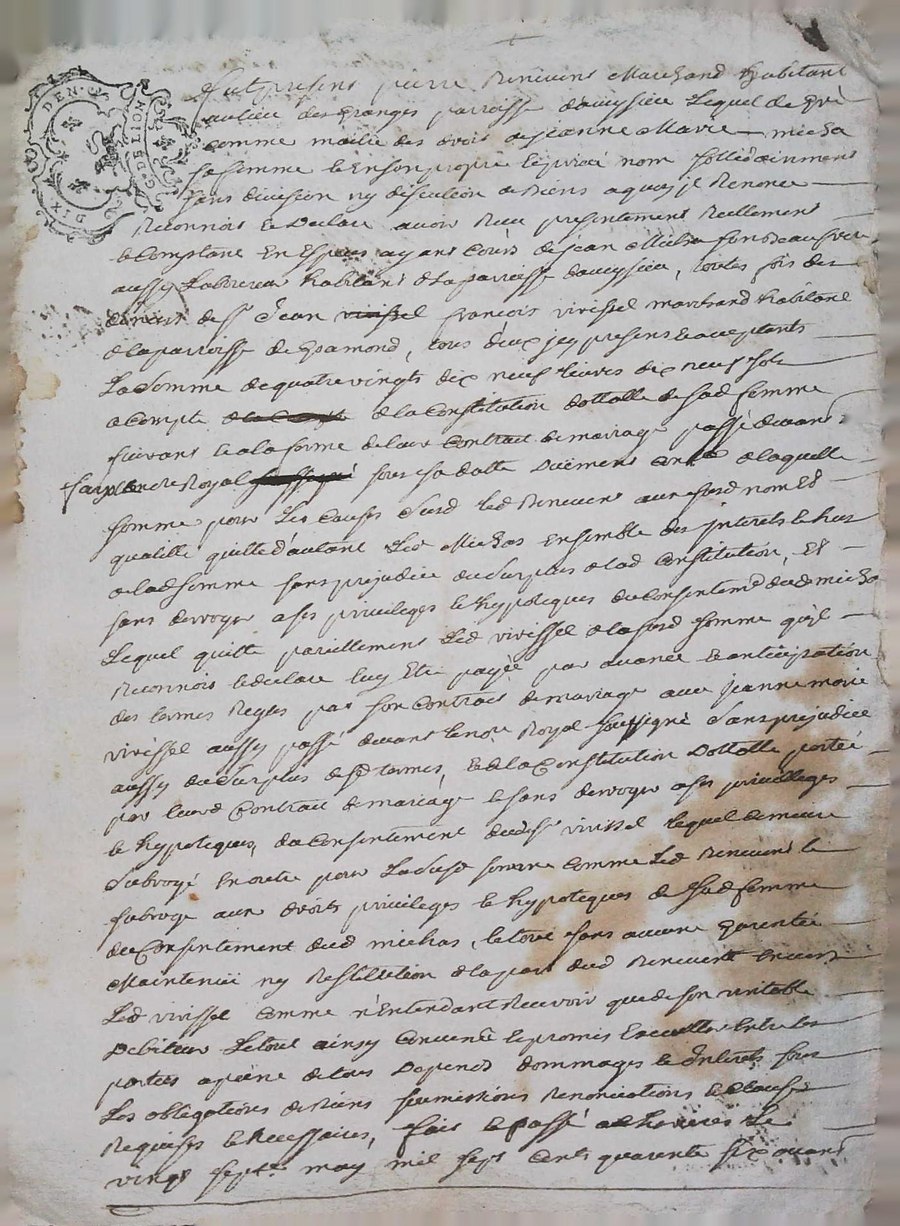 DIX DEN. G. DE LION
Fut présent pierre Renevens Marchand habitant
au lieu des granges parroisse Lequel de gré
comme maitre des droits de Jeanne Marie micha
sa femme le En son propre et privé nom sollidairement
sans division ny discution de Biens a quoy il Renonce
Reconnois le Declare avoir Receu presentement Reellement
le Comptant En Especes ayant Cours de Jean Micha son Beaufrere
aussy Laboureur habitant de la parroisse toutes fois des
deniers de Sr Jean francois vivissel marchand habitant
de la parroisse de tous deux icy presents le acceptants
La Somme de quatre vingts dix neuf Livres dix neuf sols
a compte de la Constitution dottalle de sad femme
suivant le a la forme de leur Contract de mariage passé devant
Royal sous sa datte de laquelle
somme pour Les Causes Susd Led Renevens aux susd nom Et
qualitté quitte d'autant Led Michas Ensemble des interets le
de lad somme sans prejudice du Surplus de lad Constitution, Et
sans deroger a ses privileges le hypoteques du Consentemt dud micha
Lequel quitte pareillement Led vivissel de la susd somme qu'il
Reconnois le declare luy Etre payée par avance le anticipation
des termes Regles par son Contract de mariage avec Jeanne marie
vivissel aussy passé devant le nore Royal soussigné Sans prejudice
aussy du Surplus desd termes, le de la Constitution Dottalle portée
par leurd Contract de mariage le sans deroger a ses privilleges
le hypoteques, du Consentement dudsr vivissel lequel demeure
Subrogé En outre pour La Susd somme comme Led Renevens le
subroge aux droits privileges le hypoteques de sad femme
du Consentement dud michas, le tout sans aucune garentie
Maintenüe ny Restitution de la part dud Renevens Envers
Led vivissel Comme n'Entendant Recevoir que de son veritable
Debiteur Le tout ainsy Convenu le promis Executter Entre les
parties a peine de tous Depends dommages le Interets sous
Les obligations de Biens soumissions Renonciations le Clauses
Requises le Necessaires, fait le passé a le
vingt Septe may mil Sept Cents quarente six avant